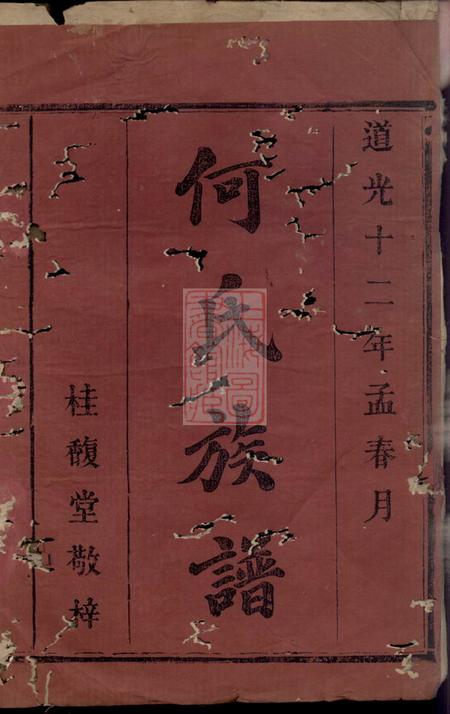 道光十二年孟春月
何氏族譜
桂馥堂敬梓